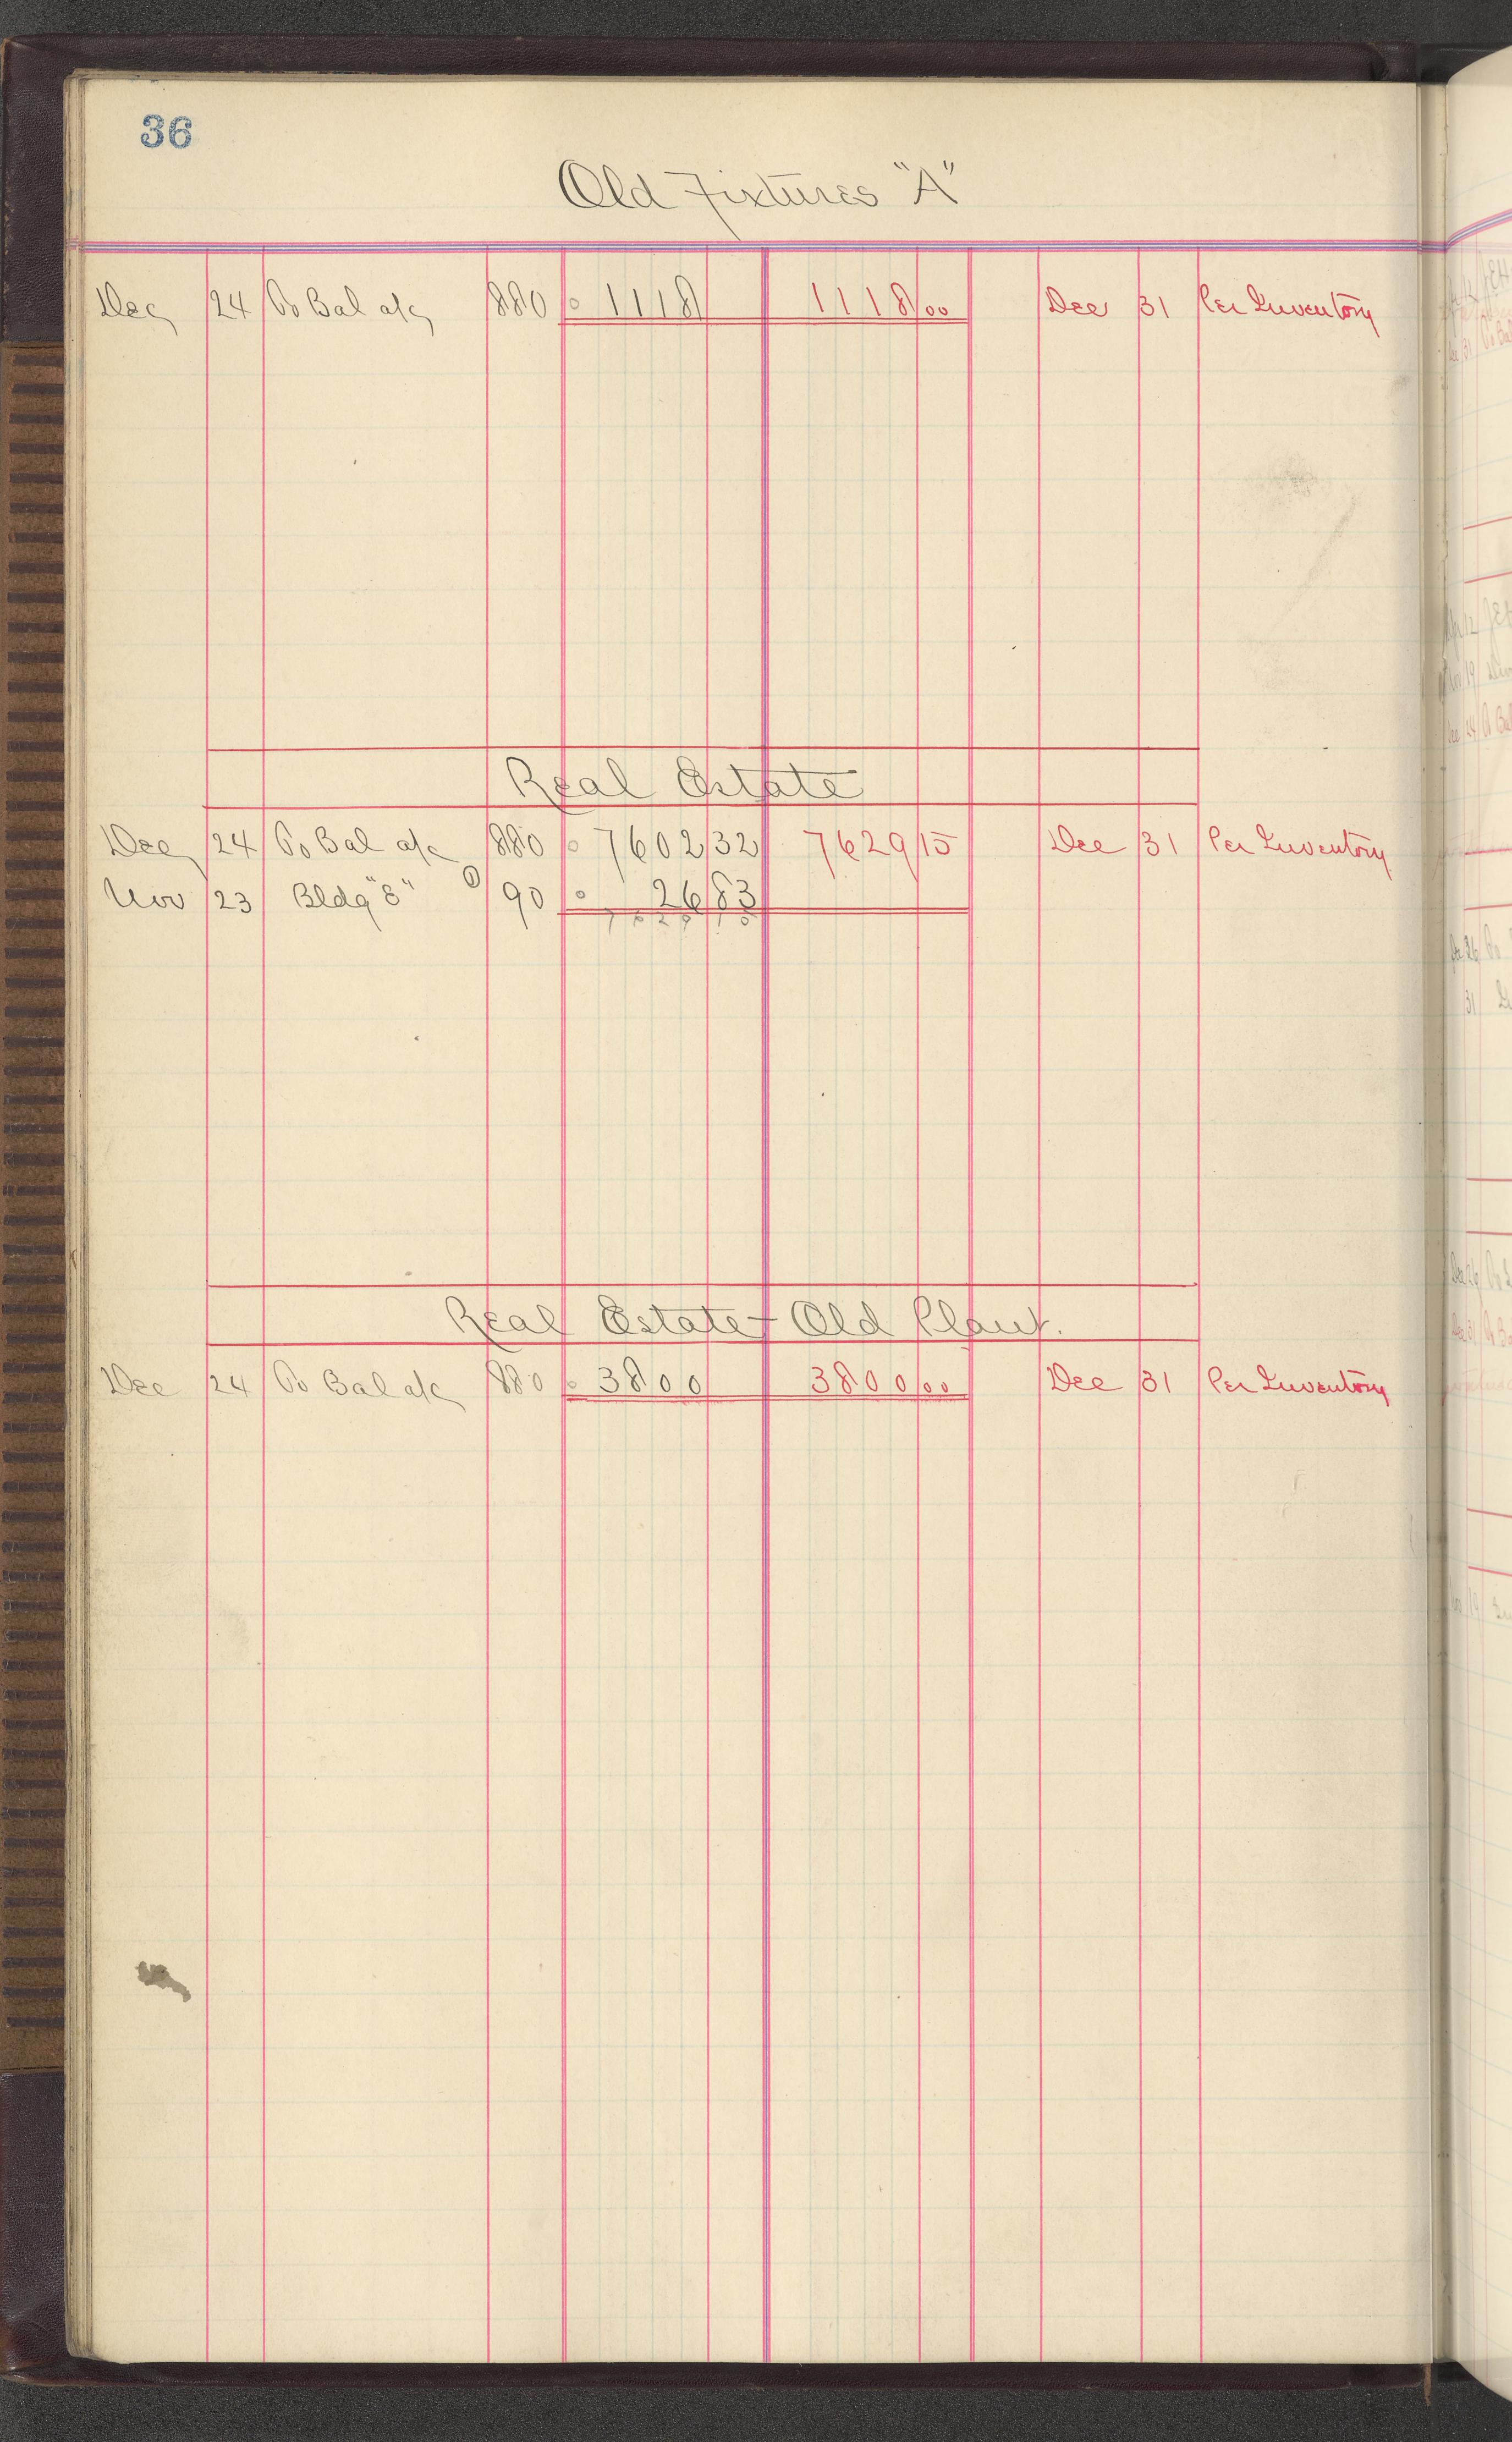 36
Old Fixtures "A"
Dec 24 To Bal a/c 880 1118 1118 00 Dec 31 Per Inventory
Real Estate
Dec 24 To Bal a/c 880 7602 32 7629 15 Dec 31 Per Inventory
Nov 23 Bldg "E" 90 26 83
7629 15
Real Estate - Old Plant.
Dec 24 To Bal a/c 880 3800 3800 00 Dec 31 Per Inventory